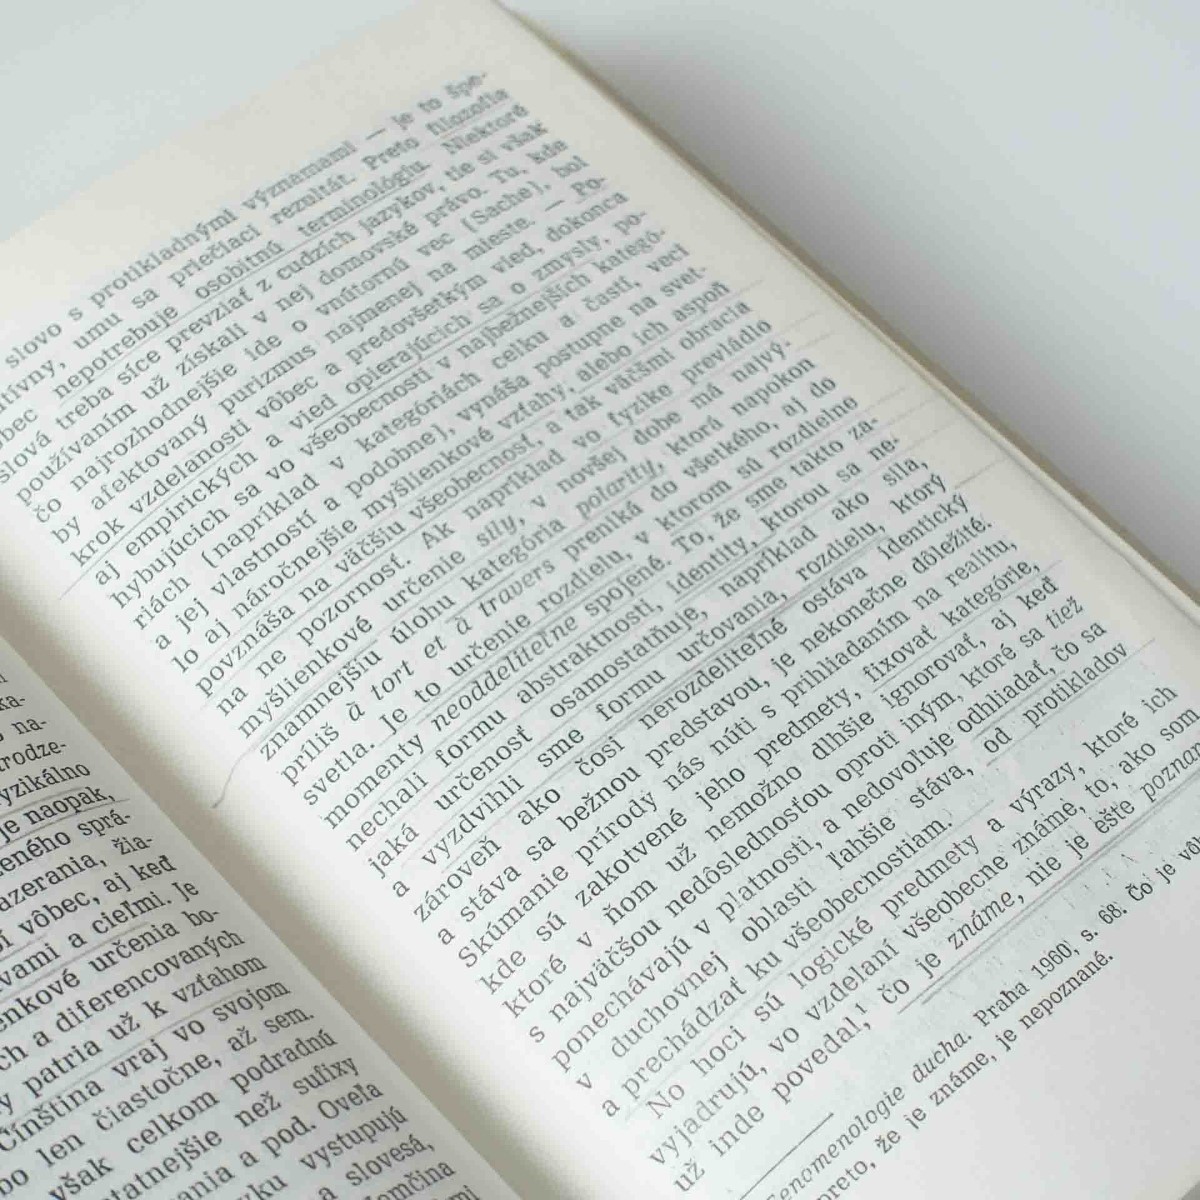 ka-
na-
rodze-
yzikálno
je naopak,
eného sprá-
azerania, žia-
vôbec, aj keď
vami a cieľmi. Je
enkové určenia bo-
ch a diferencovaných
y patria už k vzťahom
Čínština vraj vo svojom
bo len čiastočne, až sem.
však celkom podradnú
tatnejšie než sufixy
ania a pod. Oveľa
ku vystupujú
a slovesá,
omčina
slovo s protikladnými významami — je to špe-
tívny, umu sa priečiaci rezultát. Preto filozofia
bec nepotrebuje osobitnú terminológiu. Niektoré
slová treba síce prevziať z cudzích jazykov, tie si však
používaním už získali v nej domovské právo. Tu, kde
čo najrozhodnejšie ide o vnútornú vec (Sache), bol
by afektovaný purizmus najmenej na mieste. — Po-
krok vzdelanosti vôbec a predovšetkým vied, dokonca
aj empirických a vied opierajúcich sa o zmysly, po-
hybujúcich sa vo všeobecnosti v najbežnejších kategó-
riách (napríklad v kategóriách celku a častí, veci
a jej vlastností a podobne), vynáša postupne na svet-
lo aj náročnejšie myšlienkové vzťahy, alebo ich aspoň
povznáša na väčšiu všeobecnosť, a tak väčšmi obracia
na ne pozornosť. Ak napríklad vo fyzike prevládlo
myšlienkové určenie sily, v novšej dobe má najvý-
znamnejšiu úlohu kategória polarity, ktorá napokon
príliš à tort et à travers preniká do všetkého, aj do
svetla. Je to určenie rozdielu, v ktorom sú rozdielno
momenty neoddeliteľne spojené. To, že sme takto za-
nechali formu abstraktnosti, identity, ktorou sa ne-
jaká určenosť osamostatňuje, napríklad ako sila,
a vyzdvihli sme formu určovania, rozdielu, ktorý
zároveň ako čosi nerozdeliteľné ostáva identický
a stáva sa bežnou predstavou, je nekonečne dôležité.
Skúmanie prírody nás núti s prihliadaním na realitu,
kde sú zakotvené jeho predmety, fixovať kategórie,
ktoré v ňom už nemožno dlhšie ignorovať, aj keď
s najväčšou nedôslednosťou oproti iným, ktoré sa tiež
ponechávajú v platnosti, a nedovoľuje odhliadať, čo sa
v duchovnej oblasti ľahšie stáva, od protikladov
a prechádzať ku všeobecnostiam.
No hoci sú logické predmety a výrazy, ktoré ich
vyjadrujú, vo vzdelaní všeobecne známe, to, ako som
už inde povedal,¹ čo je známe, nie je ešte poznané
enomenologie ducha. Praha 1960, s. 68. Čo je vô
preto, že je známe, je nepoznané.